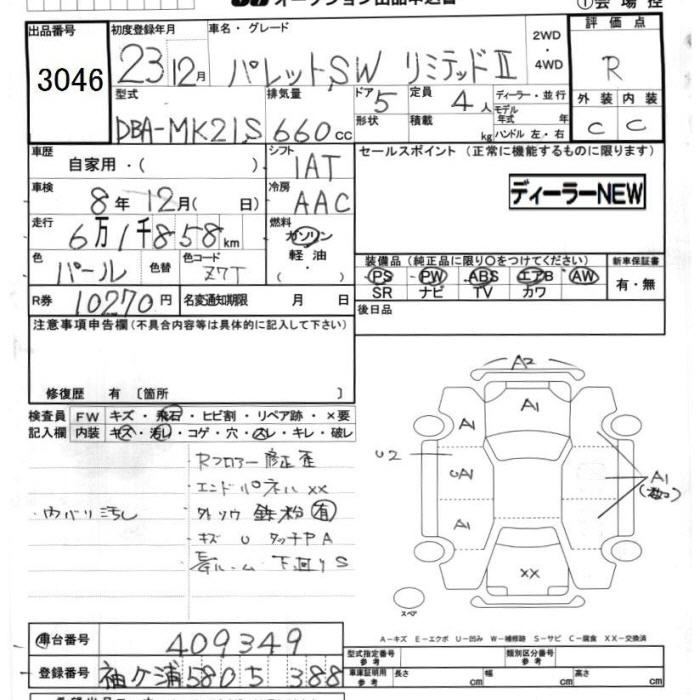 オークション出品申込書
①会場控
出品番号
3046
初度登録年月
23 12月
車名・グレード
パレットSW リミテッドⅡ
2WD
・
4WD
評価点
R
型式
DBA-MK21S
排気量
660cc
ドア 5
形状
定員 4人
積載 kg
ディーラー・並行
モデル年式 年
ハンドル 左・右
外装 内装
C C
車歴
自家用・( )
シフト
IAT
セールスポイント (正常に機能するものに限ります)
ディーラーNEW
車検
8年 12月( 日)
冷房
AAC
走行
6万1千858km
燃料
ガソリン
軽油・
( )
色
パール
色替
色コード
Z7T
装備品 (純正品に限り○をつけてください)
PS PW ABS エアB AW
SR ナビ TV カワ
新車保証書
有・無
R券 10270円
名変通知期限 月 日
後日品
注意事項申告欄 (不具合内容等は具体的に記入して下さい)
修復歴 有 〔箇所 〕
検査員 FW キズ・飛石・ヒビ割・リペア跡・×要
記入欄 内装 キズ・汚レ・コゲ・穴・スレ・キレ・破レ
・Rフロアー修正歪
・エンドパネルXX
・ウバリ汚し
・外ソウ鉄粉(有)
・キズ U タッチPA
下回りS
A2
A1
A1
U2
UA1
A1
A1
XX
スペア
A-キズ E-エクボ U-凹み W-補修跡 S-サビ C-腐食 XX-交換済
車台番号 409349
登録番号 袖ケ浦 580 5 388
型式指定番号
参考
類別区分番号
参考
車庫証明用
参考
長さ cm
幅 cm
高さ cm